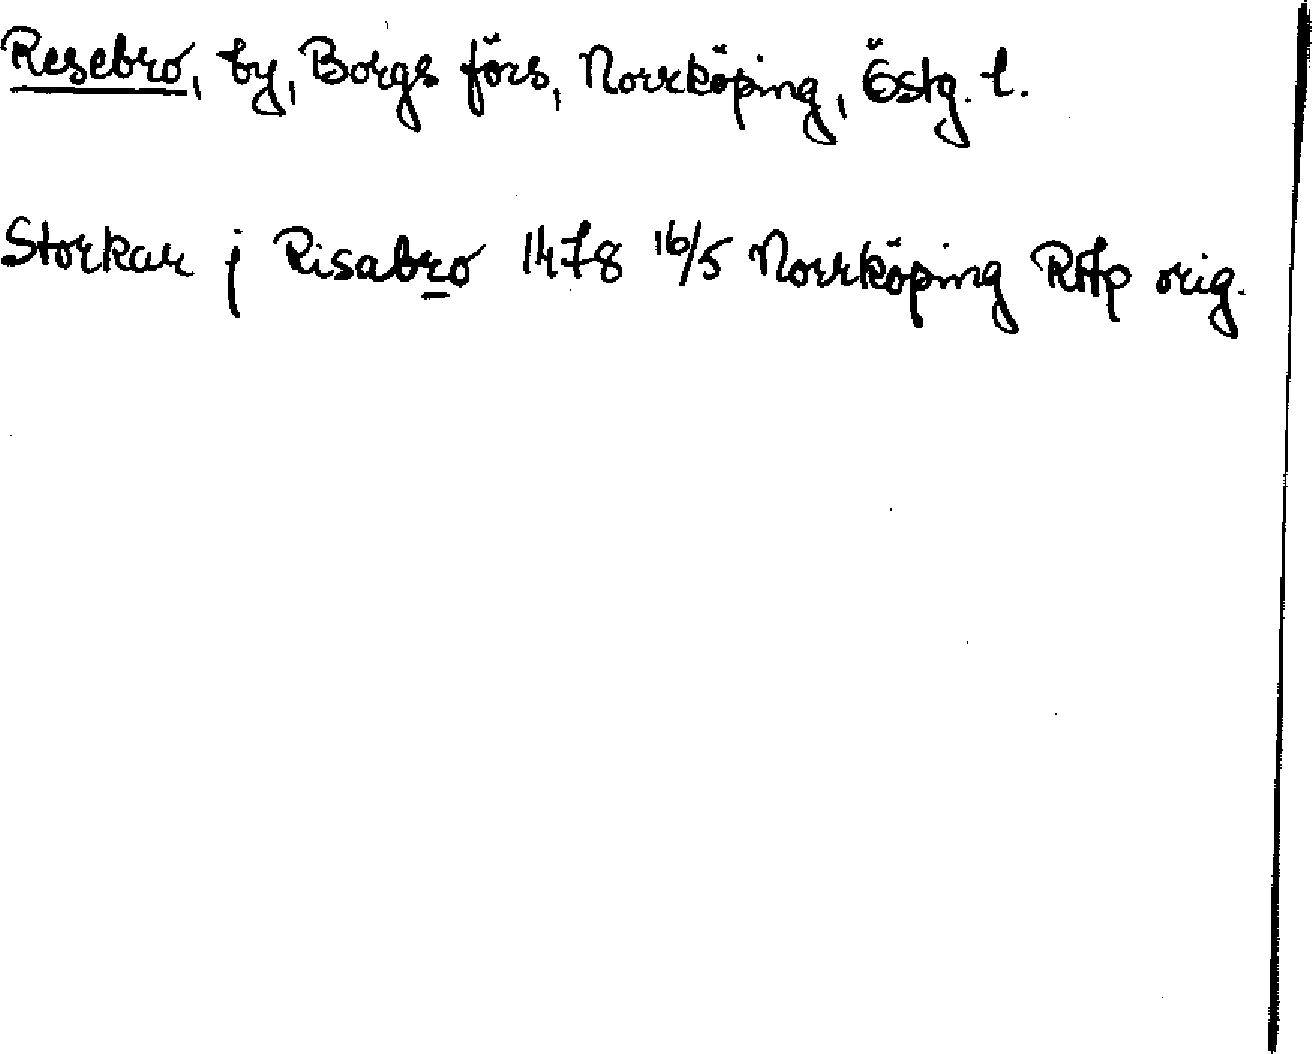 Resebro, by, Borgs förs, Norrköping, Östg. l.
Storkar j Risabro 1478 16/5 Norrköping RAp orig.